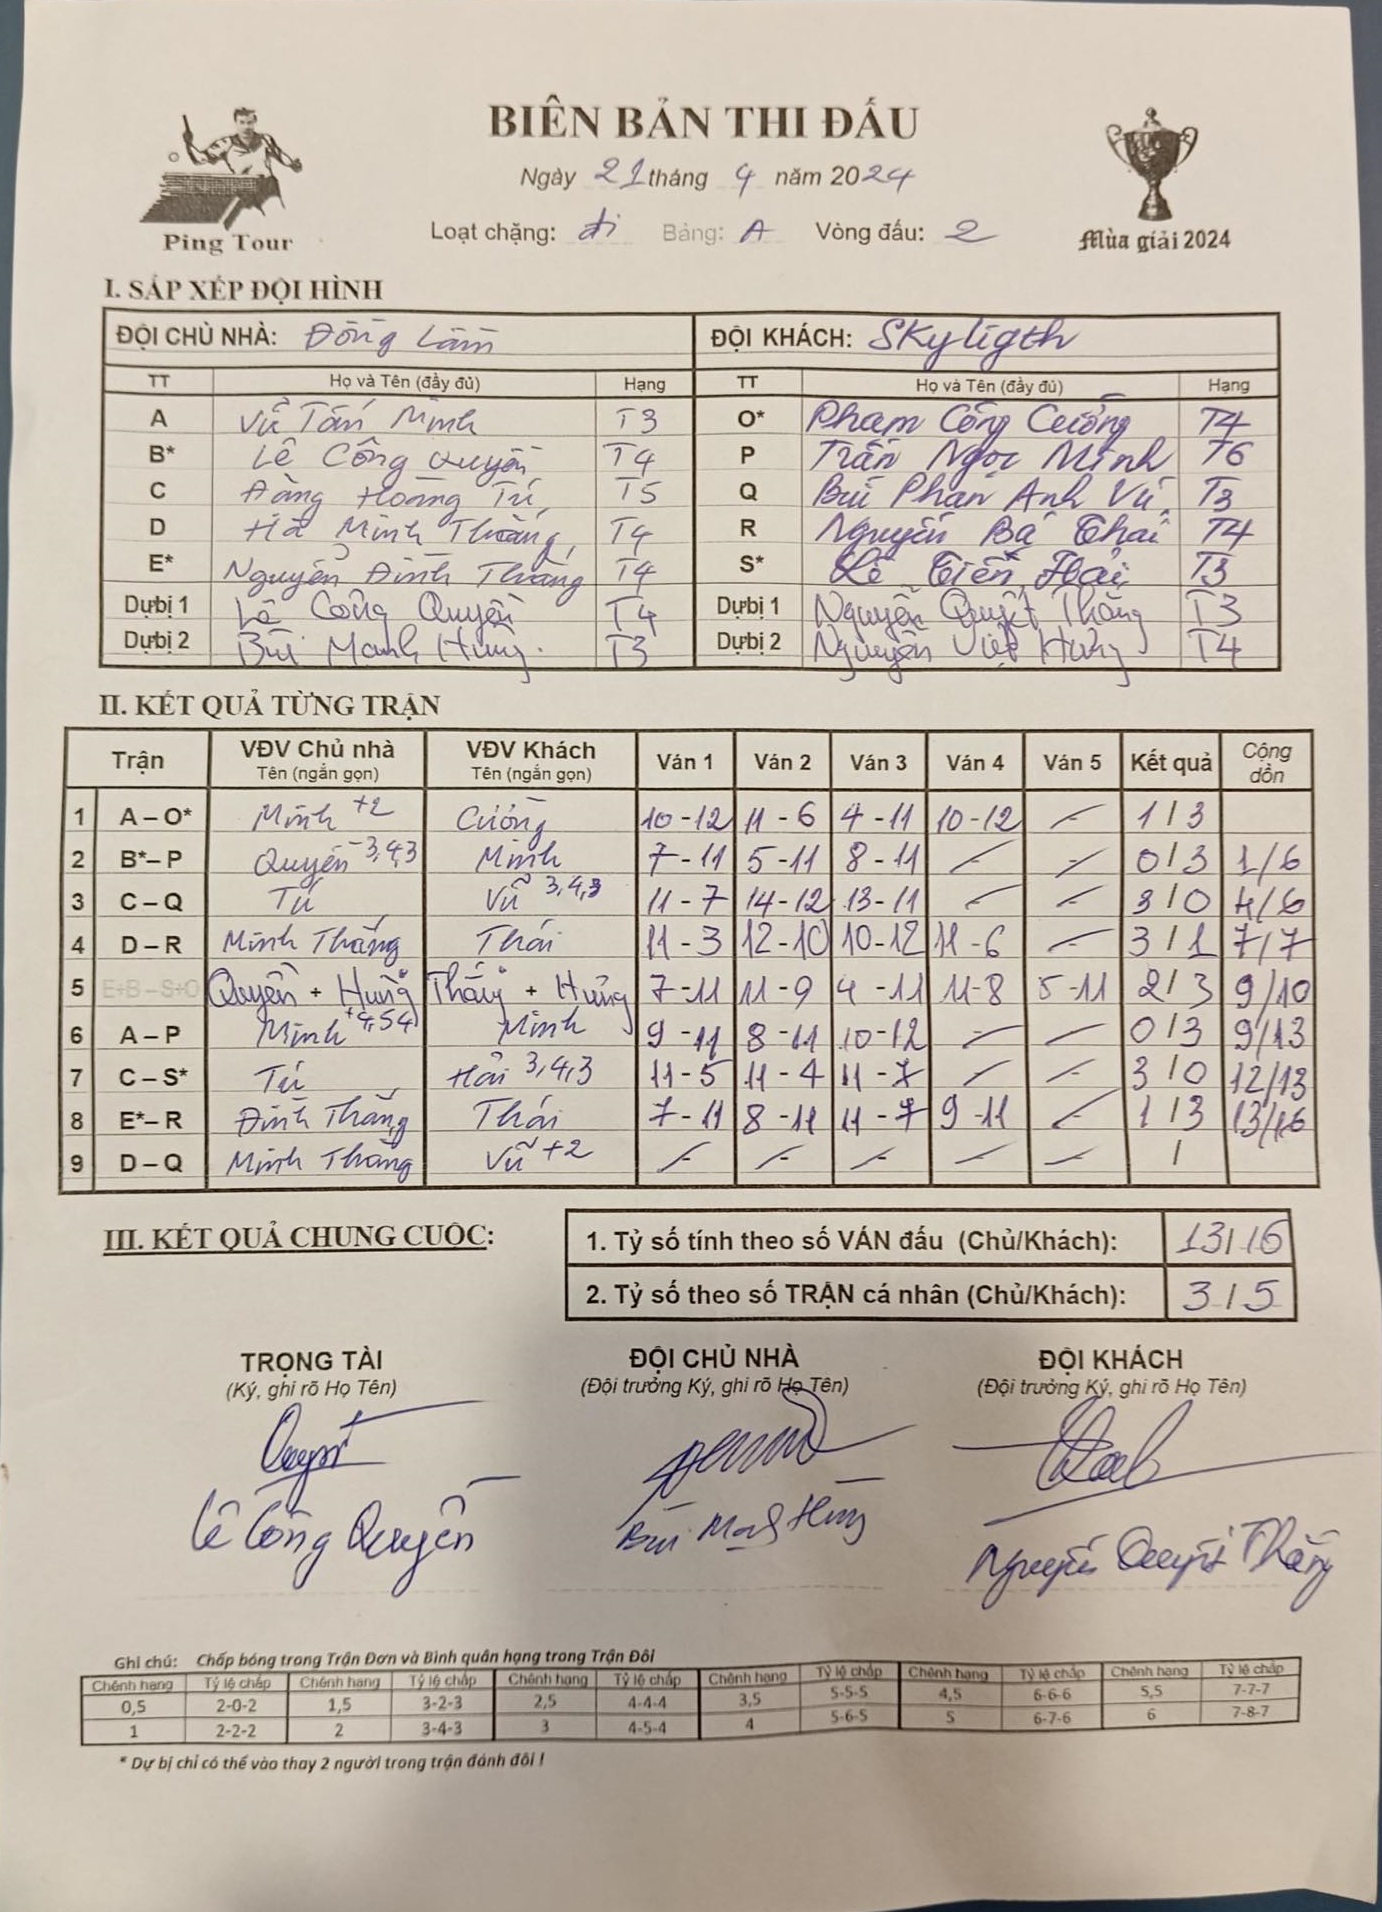 BIÊN BẢN THI ĐẤU
Ngày 21 tháng 4 năm 2024
Loạt chặng: đi Bảng: A Vòng đấu: 2
Ping Tour
Mùa giải 2024
I. SẮP XẾP ĐỘI HÌNH
ĐỘI CHỦ NHÀ: Đồng Lầm ĐỘI KHÁCH: Skyligth
TT Họ và Tên (đầy đủ) Hạng TT Họ và Tên (đầy đủ) Hạng
A Vũ Tấn Minh T3 O* Phạm Công Cường T4
B* Lê Công Quyền T4 P Trần Ngọc Minh T6
C Đặng Hoàng Tú T5 Q Bùi Phan Anh Vũ T3
D Hà Minh Thắng T4 R Nguyễn Bá Thái T4
E* Nguyễn Đình Thắng T4 S* Lê Tiến Hải T3
Dự bị 1 Lê Công Quyền T4 Dự bị 1 Nguyễn Quyết Thắng T3
Dự bị 2 Bùi Mạnh Hùng T3 Dự bị 2 Nguyễn Việt Hưng T4
II. KẾT QUẢ TỪNG TRẬN
Trận VĐV Chủ nhà VĐV Khách Ván 1 Ván 2 Ván 3 Ván 4 Ván 5 Kết quả Cộng dồn
Tên (ngắn gọn) Tên (ngắn gọn)
1 A – O* Minh +2 Cường 10 - 12 11 - 6 4 - 11 10 - 12 - 1 / 3
2 B* – P Quyền 3,4,3 Minh 7 - 11 5 - 11 8 - 11 - - 0 / 3 1/6
3 C – Q Tú Vũ 3,4,3 11 - 7 14 - 12 13 - 11 - - 3 / 0 4/6
4 D – R Minh Thắng Thái 11 - 3 12 - 10 10 - 12 11 - 6 - 3 / 1 7/7
5 E+B – S+O Quyền + Hùng Thắng + Hưng 7 - 11 11 - 9 4 - 11 11 - 8 5 - 11 2 / 3 9/10
6 A – P Minh +4,5,4 Minh 9 - 11 8 - 11 10 - 12 - - 0 / 3 9/13
7 C – S* Tú Hải 3,4,3 11 - 5 11 - 4 11 - 7 - - 3 / 0 12/13
8 E* – R Đình Thắng Thái 7 - 11 8 - 11 11 - 7 9 - 11 - 1 / 3 13/16
9 D – Q Minh Thắng Vũ +2 - - - - - /
III. KẾT QUẢ CHUNG CUỘC:
1. Tỷ số tính theo số VÁN đấu (Chủ/Khách): 13 / 16
2. Tỷ số theo số TRẬN cá nhân (Chủ/Khách): 3 / 5
TRỌNG TÀI ĐỘI CHỦ NHÀ ĐỘI KHÁCH
(Ký, ghi rõ Họ Tên) (Đội trưởng Ký, ghi rõ Họ Tên) (Đội trưởng Ký, ghi rõ Họ Tên)
Lê Công Quyền Bùi Mạnh Hùng Nguyễn Quyết Thắng
Ghi chú: Chấp bóng trong Trận Đơn và Bình quân hạng trong Trận Đôi
Chênh hạng Tỷ lệ chấp Chênh hạng Tỷ lệ chấp Chênh hạng Tỷ lệ chấp Chênh hạng Tỷ lệ chấp Chênh hạng Tỷ lệ chấp Chênh hạng Tỷ lệ chấp
0,5 2-0-2 1,5 3-2-3 2,5 4-4-4 3,5 5-5-5 4,5 6-6-6 5,5 7-7-7
1 2-2-2 2 3-4-3 3 4-5-4 4 5-6-5 5 6-7-6 6 7-8-7
* Dự bị chỉ có thể vào thay 2 người trong trận đánh đôi !